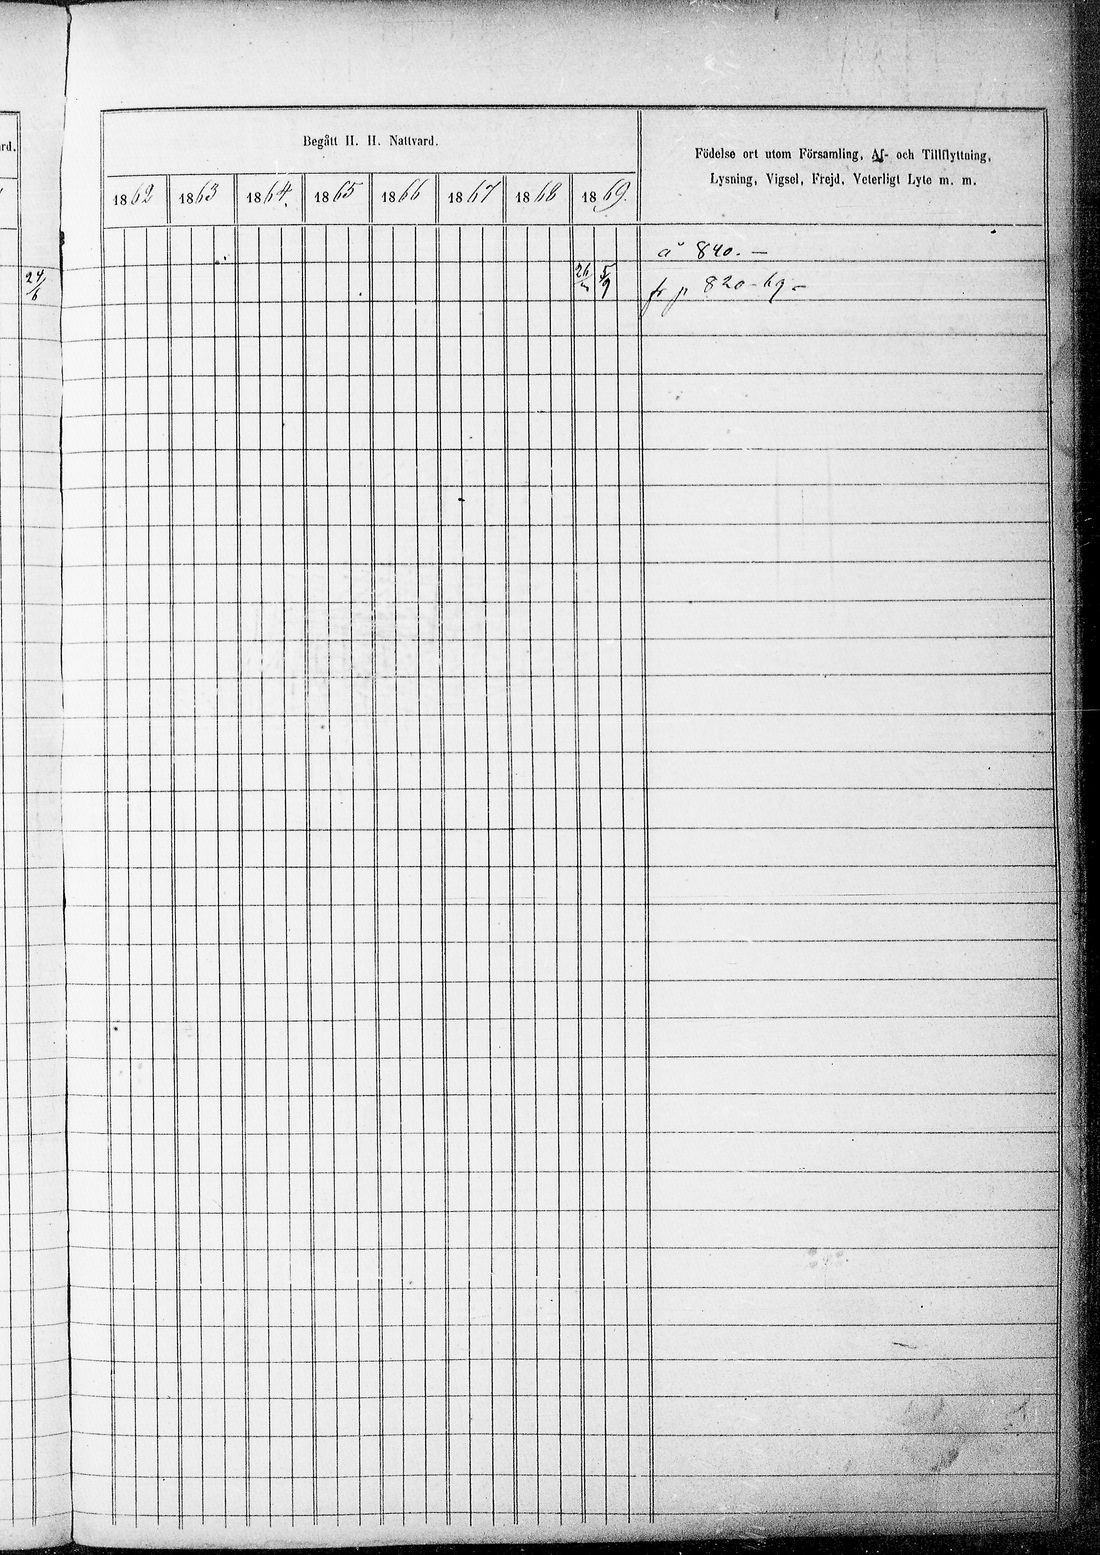 rd.
Begått H. H. Nattvard.
Födelse ort utom Församling, Af- och Tillflyttning,
Lysning, Vigsel, Frejd, Veterligt Lyte m. m.
1862 1863 1864. 1865 1866 1867 1868 1869.
å 840. —
24/6 26 5/9 fr p 820 - 69 —